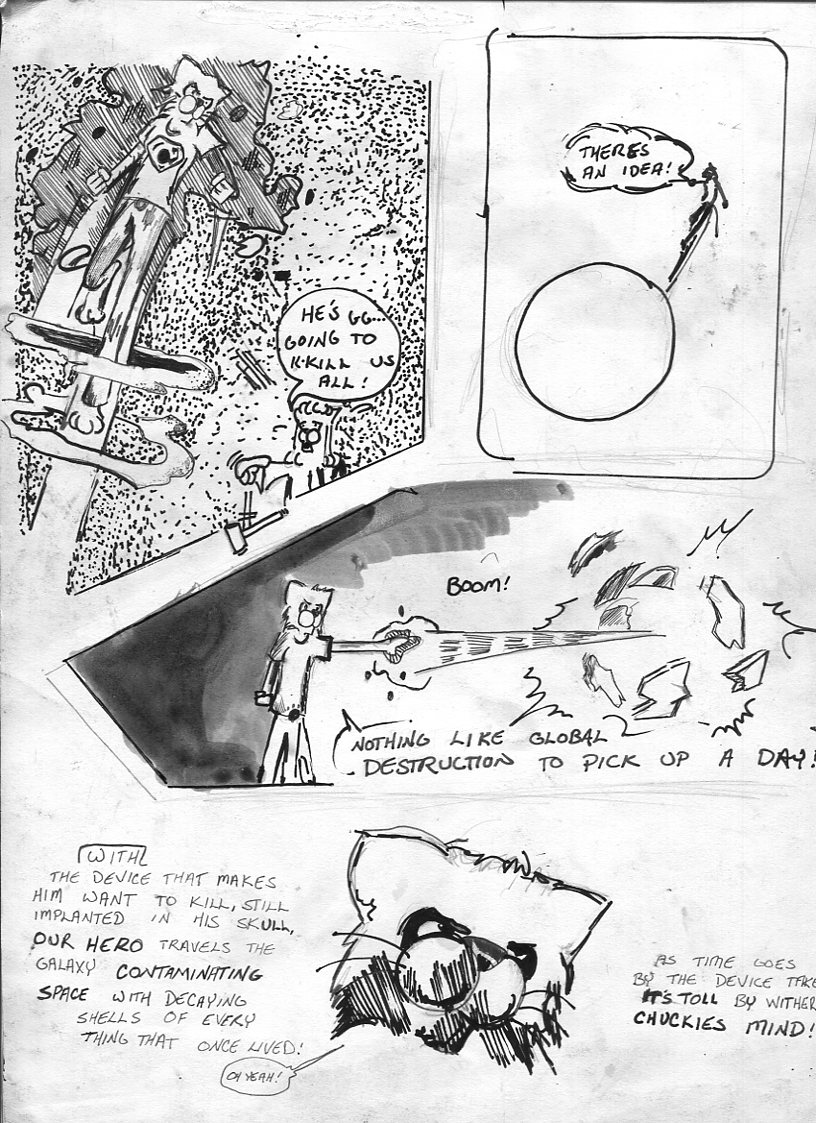 HE'S GG...
GOING TO
K-KILL US
ALL!
THERES
AN IDEA!
BOOM!
NOTHING LIKE GLOBAL
DESTRUCTION TO PICK UP A DAY!
WITH
THE DEVICE THAT MAKES
HIM WANT TO KILL, STILL
IMPLANTED IN HIS SKULL,
OUR HERO TRAVELS THE
GALAXY CONTAMINATING
SPACE WITH DECAYING
SHELLS OF EVERY
THING THAT ONCE LIVED!
OH YEAH!
AS TIME GOES
BY THE DEVICE TAKE
IT'S TOLL BY WITHER
CHUCKIES MIND!